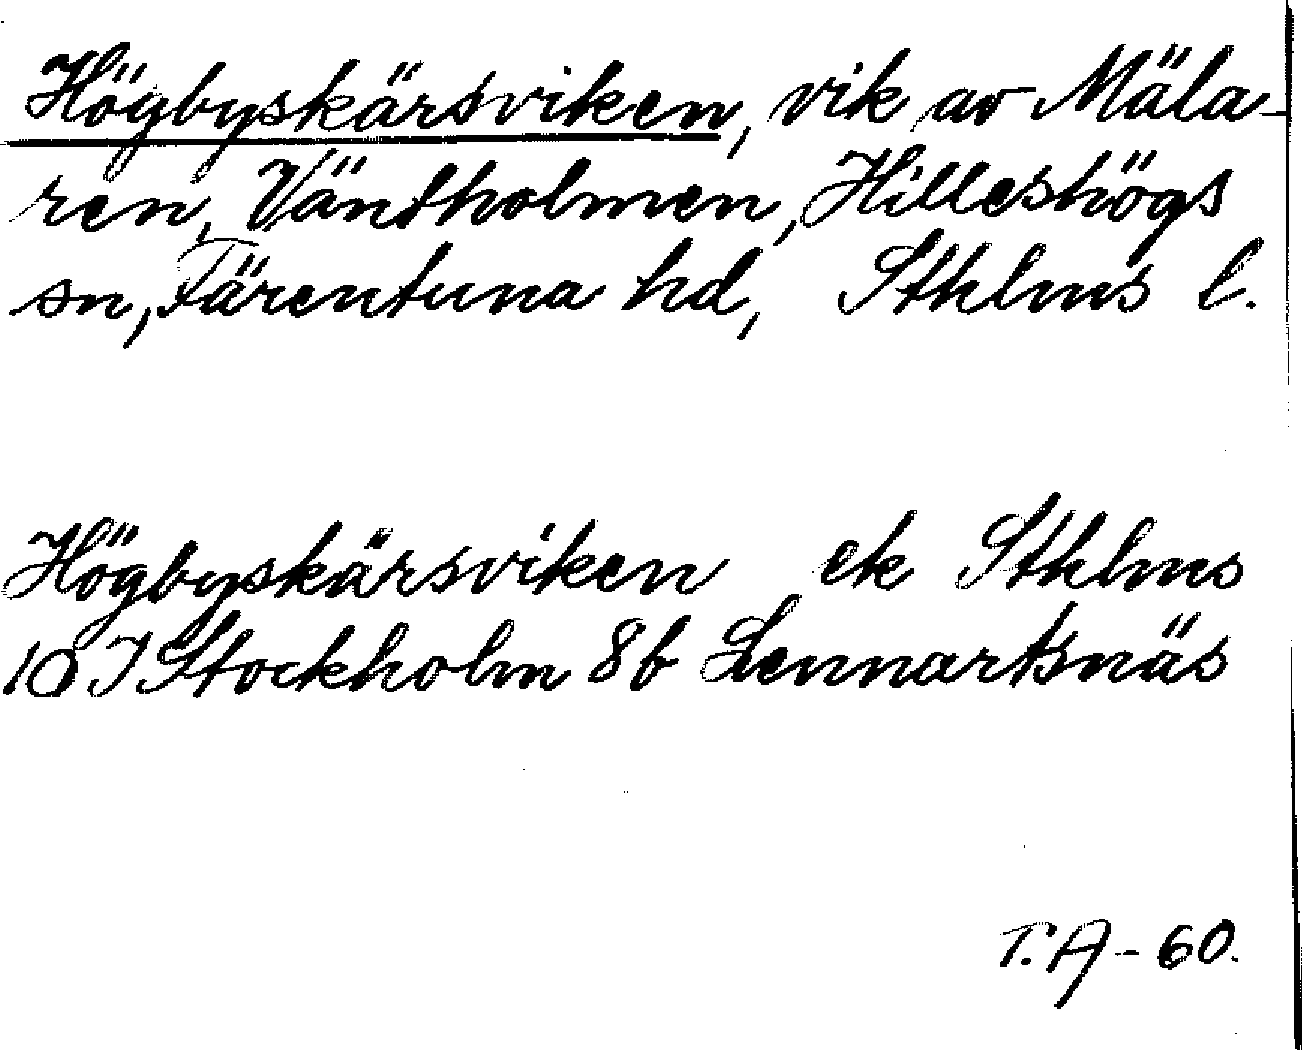 Högbyskärsviken, vik av Mäla-
ren, Väntholmen, Hilleshögs
sn, Färentuna hd, Sthlms l.
Högbyskärsviken ek Sthlms
10 I Stockholm 8b Lennartsnäs
T.A - 60.